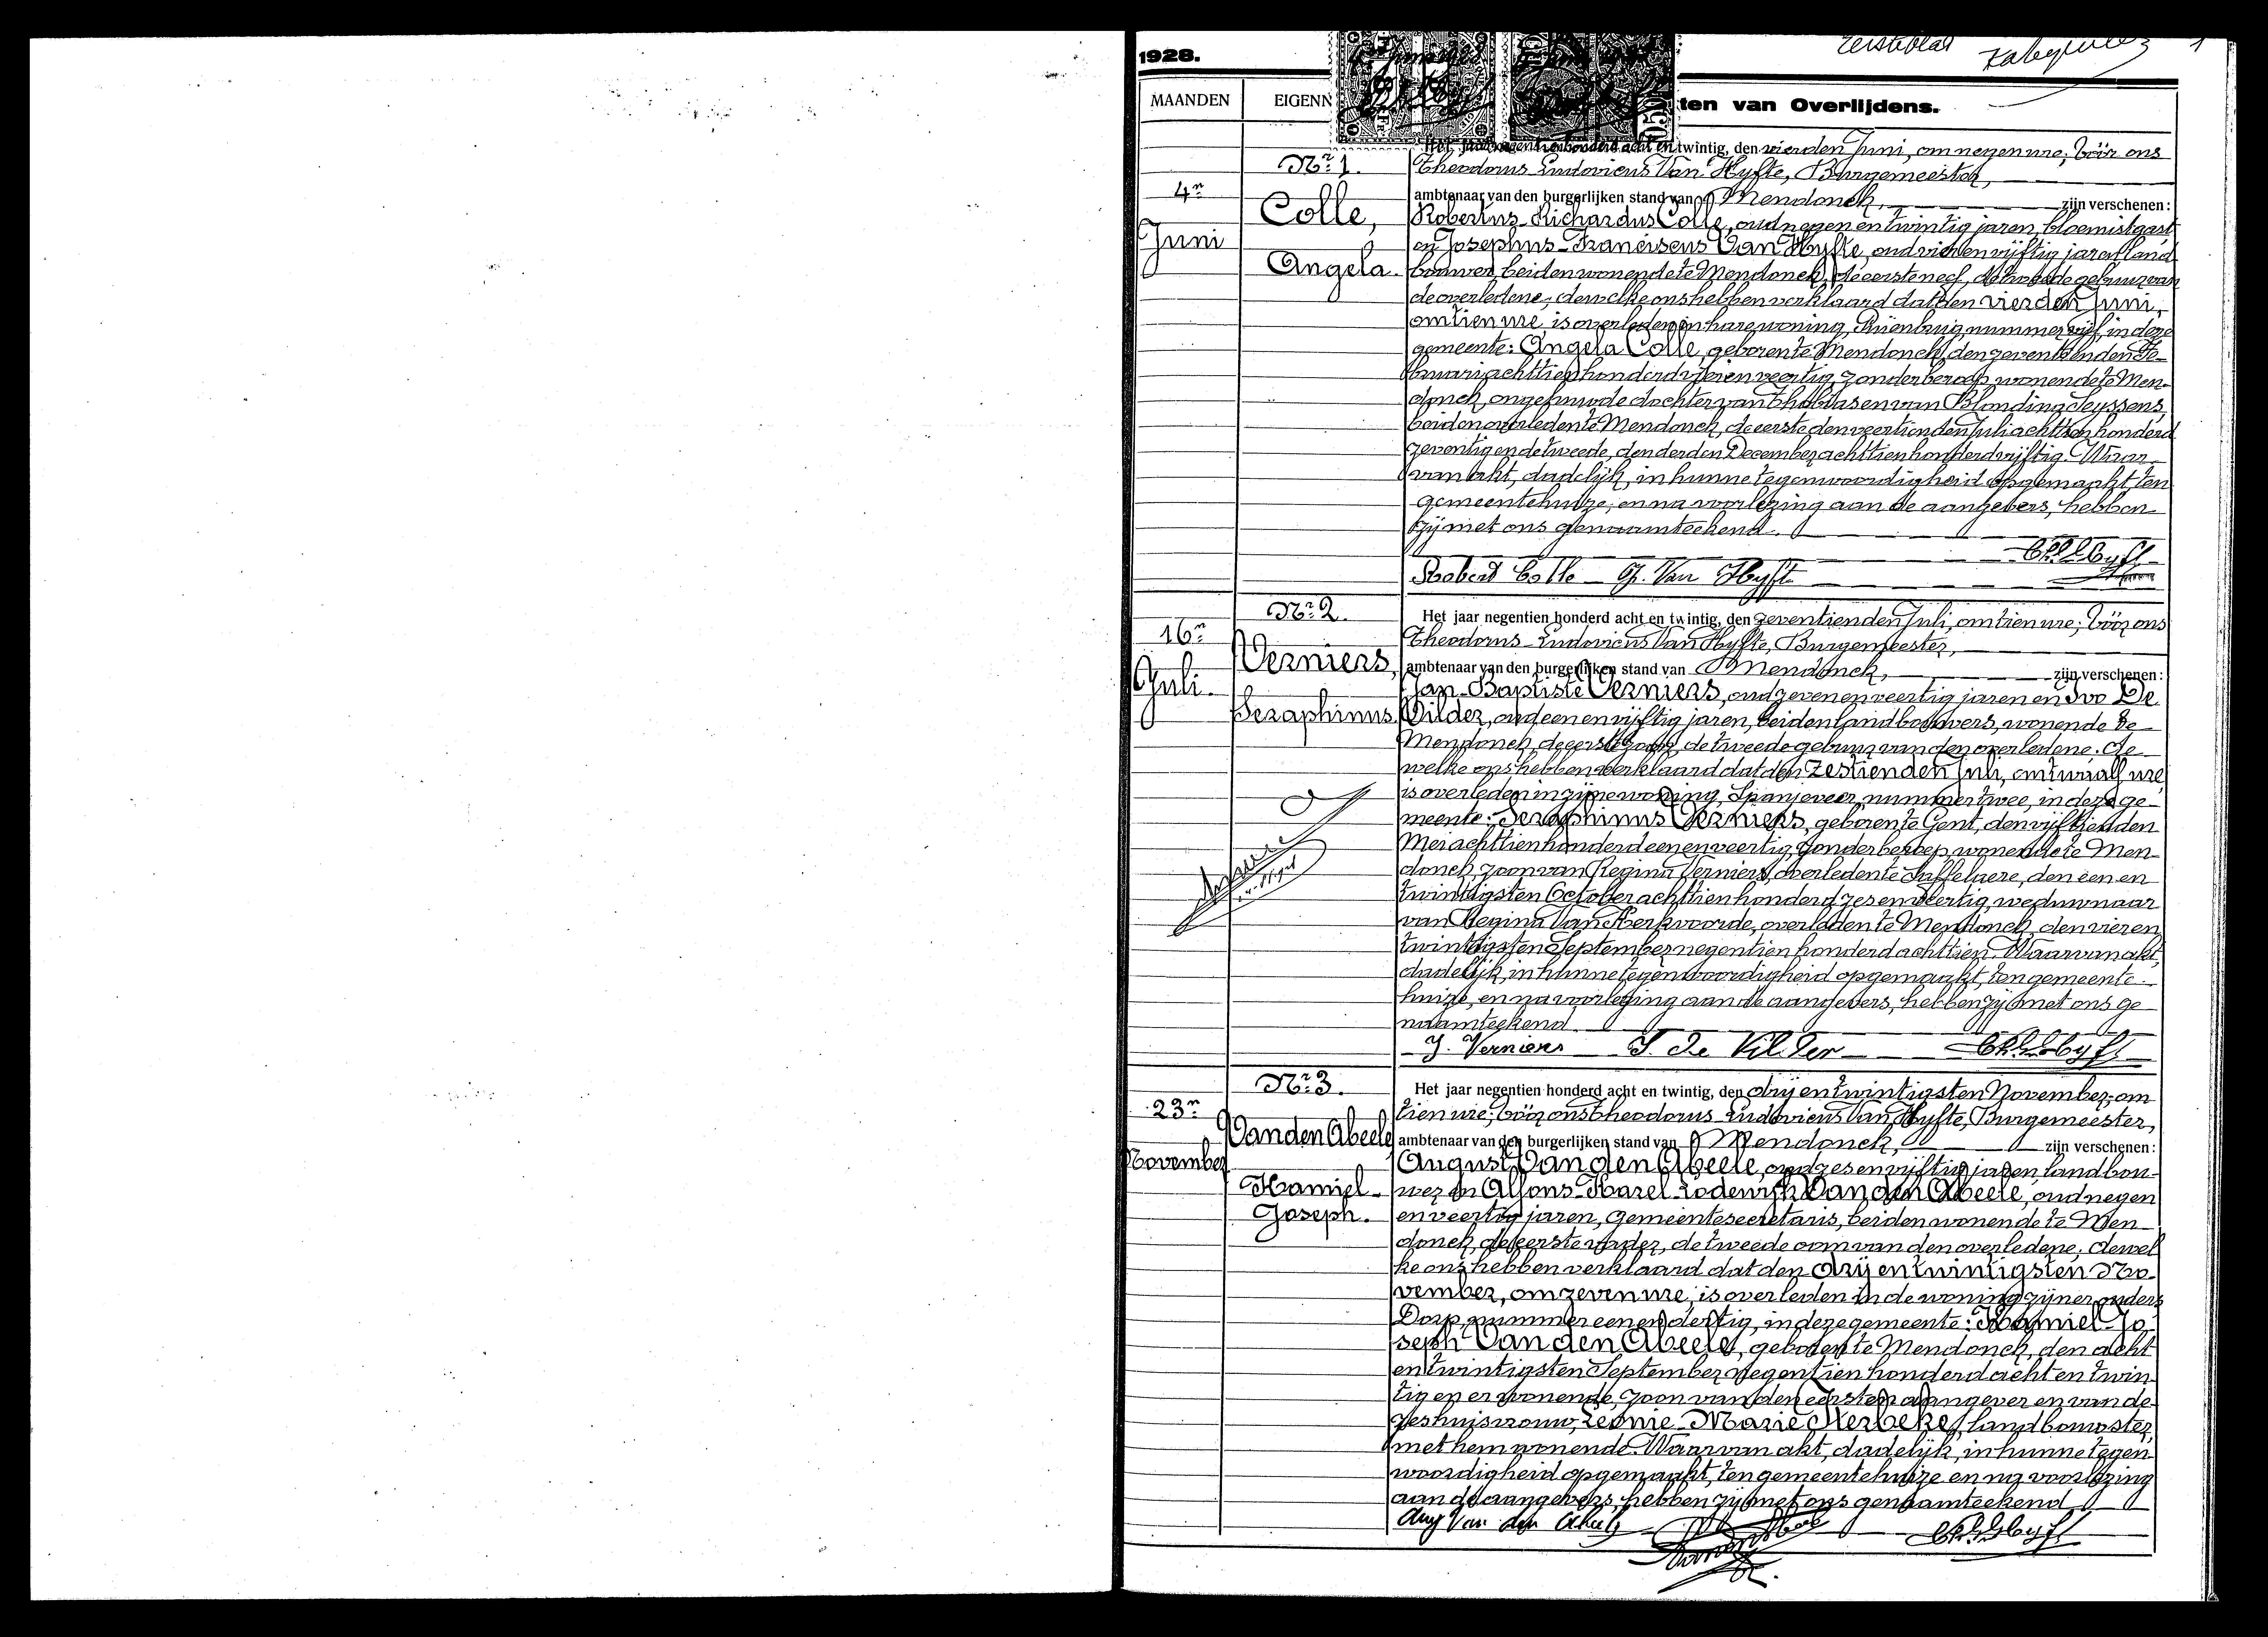 Eersteblad
1
1928.
MAANDEN
EIGENN
ten van Overlijdens.
Het jaar negentien honderd acht en twintig, den vierden Juni, om negen ure, vóór ons
Nr. 1.
Theodorus Ludovicus Van Hyfte, Burgemeester,
4n
Juni
Colle,
Angela.
ambtenaar van den burgerlijken stand van Mendonck, zijn verschenen:
Robertus Richardus Colle, oud negen en twintig jaren, bloemistgast
en Josephus Franciscus Van Hyfte, oud vier en vijftig jaren, land
bouwer, beiden wonende te Mendonck, de eerste neef, de tweede gebuur van
de overledene; dewelke ons hebben verklaard dat den vierden Juni,
om tien ure, is overleden in hare woning, nummer vijf, in deze
gemeente: Angela Colle, geboren te Mendonck, den zeventienden Fe-
bruari achttien honderd vijf en veertig, zonder beroep, wonende te Men-
donck, ongehuwde dochter van en van Blondina Seyssens,
beiden overleden te Mendonck, de eerste den veertienden Juli achttien honderd
zeventig en de tweede, den derden December achttien honderd vijftig. Waar-
van akt, dadelijk, in hunne tegenwoordigheid opgemaakt, ten
gemeentehuize; en na voorlezing aan de aangevers, hebben
zij met ons genaamteekend.
Robert Colle J. Van Hyfte
Nr. 2.
16n
Juli.
Verniers,
Seraphinus.
Het jaar negentien honderd acht en twintig, den zeventienden Juli, om tien ure, vóór ons
Theodorus Ludovicus Van Hyfte, Burgemeester,
ambtenaar van den burgerlijken stand van Mendonck, zijn verschenen:
Jan-Baptiste Verniers, oud zeven en veertig jaren en Ivo De
Vilder, oud een en vijftig jaren, beiden landbouwers, wonende te
Mendonck, de eerste zoon, de tweede gebuur van den overledene; de
welke ons hebben verklaard dat den zestienden Juli, om twaalf ure
is overleden in zijne woning, Spanjeveer, nummer twee, in deze ge-
meente: Seraphinus Verniers, geboren te Gent, den vijftienden
Mei achttien honderd een en veertig, zonder beroep, wonende te Men-
donck, zoon van Regina Verniers, overleden te Saffelaere, den een en
twintigsten October achttien honderd zes en veertig, weduwnaar
van Regina Van Kerkvoorde, overleden te Mendonck, den vier en
twintigsten September negentien honderd achttien. Waarvan akt,
dadelijk, in hunne tegenwoordigheid opgemaakt, ten gemeente-
huize, en na voorlezing aan de aangevers, hebben zij met ons ge
naamteekend.
J. Verniers I. De Vilder
Nr. 3.
23n
November
Van den Abeele
Kamiel-
Joseph.
Het jaar negentien honderd acht en twintig, den drij en twintigsten November, om
tien ure, vóór ons Theodorus Ludovicus Van Hyfte, Burgemeester,
ambtenaar van den burgerlijken stand van Mendonck, zijn verschenen:
August Van den Abeele, oud zes en vijftig jaren, landbou-
wer en Alfons-Karel-Lodewijk Van den Abeele, oud negen
en veertig jaren, gemeentesecretaris, beiden wonende te Men-
donck, de eerste vader, de tweede oom van den overledene; dewel
ke ons hebben verklaard dat den drij en twintigsten No-
vember, om zeven ure, is overleden in de woning zijner ouders
Dorp, nummer een en dertig, in deze gemeente: Kamiel-Jo
seph Van den Abeele, geboren te Mendonck, den acht
en twintigsten September negentien honderd acht en twin-
tig en er wonende, zoon van den eersten aangever en van de
zes huisvrouw, Leonie-Marie Nerbeke, landbouwster,
met hem wonende. Waarvan akt, dadelijk, in hunne tegen-
woordigheid opgemaakt, ten gemeentehuize en na voorlezing
aan de aangevers, hebben zij met ons genaamteekend
Aug Van den Abeele